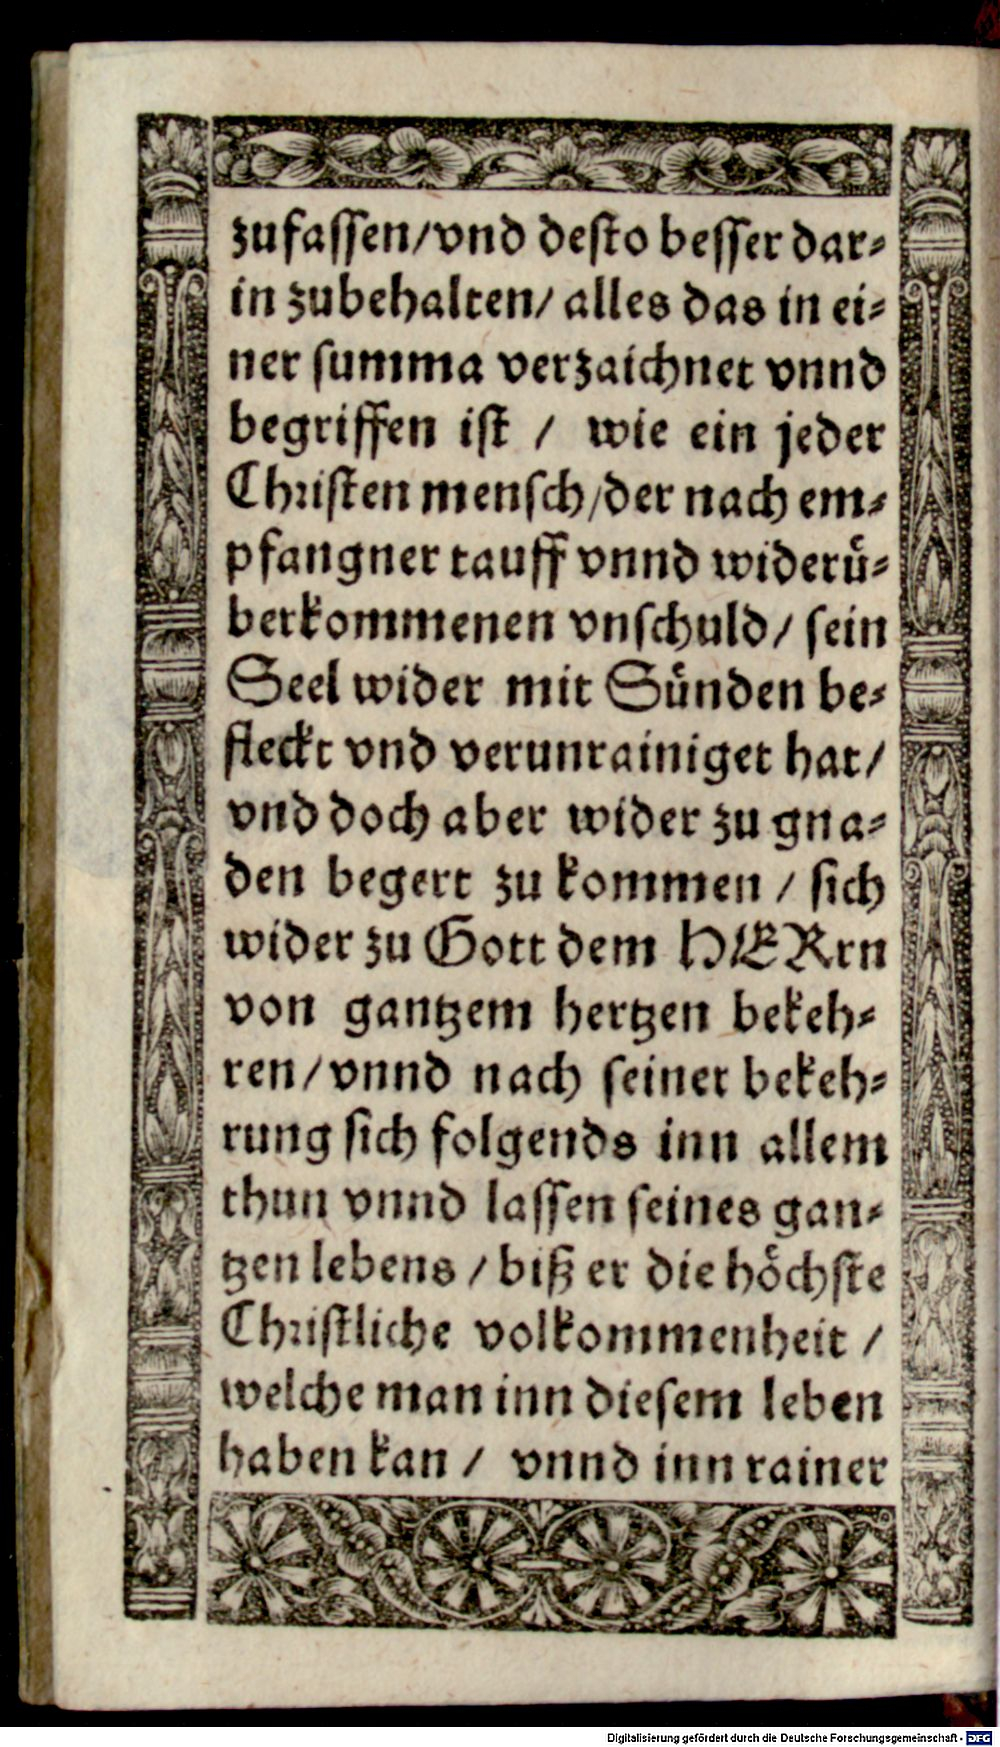 zufassen/vnd desto besser dar⸗
in zubehalten/ alles das in ei⸗
ner summa verzaichnet vnnd
begriffen ist / wie ein jeder
Christen mensch/der nach em⸗
pfangner tauff vnnd widerü⸗
berkommenen vnschuld/ sein
Seel wider mit Sünden be⸗
fleckt vnd verunrainiget hat/
vnd doch aber wider zu gna⸗
den begert zu kommen / sich
wider zu Gott dem HERrn
von gantzem hertzen bekeh⸗
ren/vnnd nach seiner bekeh⸗
rung sich folgends inn allem
thun vnnd lassen seines gan⸗
tzen lebens / biß er die höchste
Christliche volkommenheit /
welche man inn diesem leben
haben kan / vnnd inn rainer
Digitalisierung gefördert durch die Deutsche Forschungsgemeinschaft - DFG